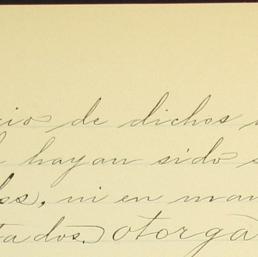 cio de dichos
hayan sido
, ni en man
tados. otorga